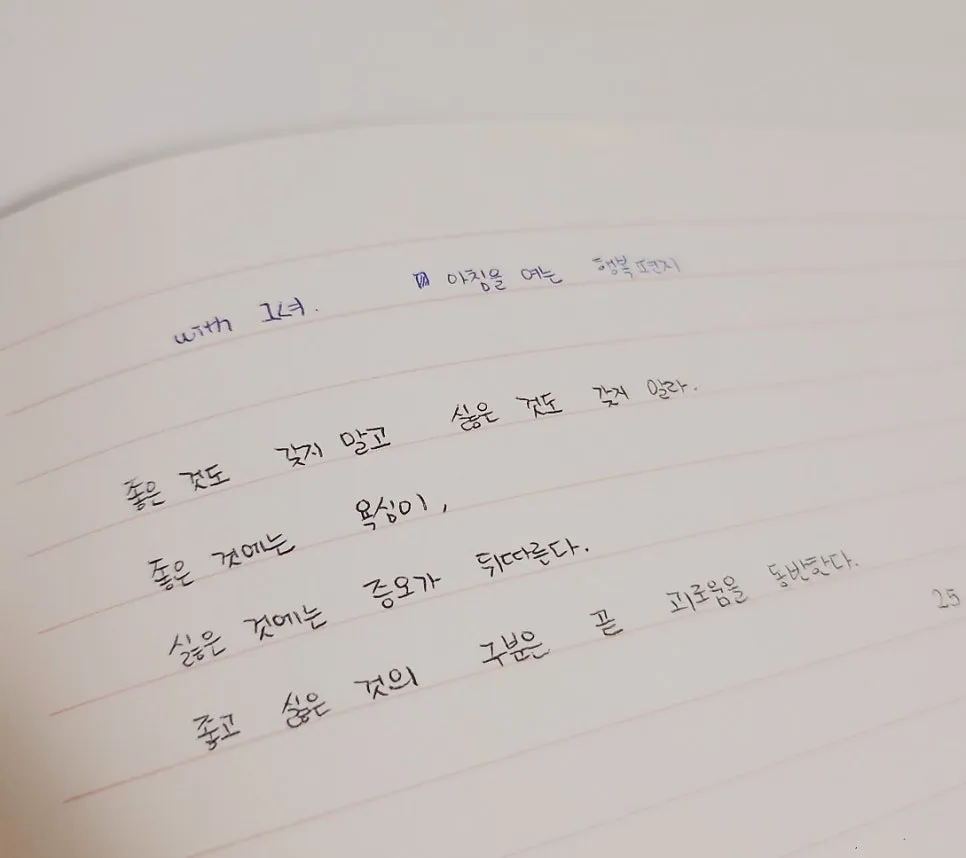 with 그녀. 아침을 여는 행복편지
좋은 것도 갖지 말고 싫은 것도 갖지 말라.
좋은 것에는 욕심이,
싫은 것에는 증오가 뒤따른다.
좋고 싫은 것의 구분은 곧 괴로움을 동반한다.
25